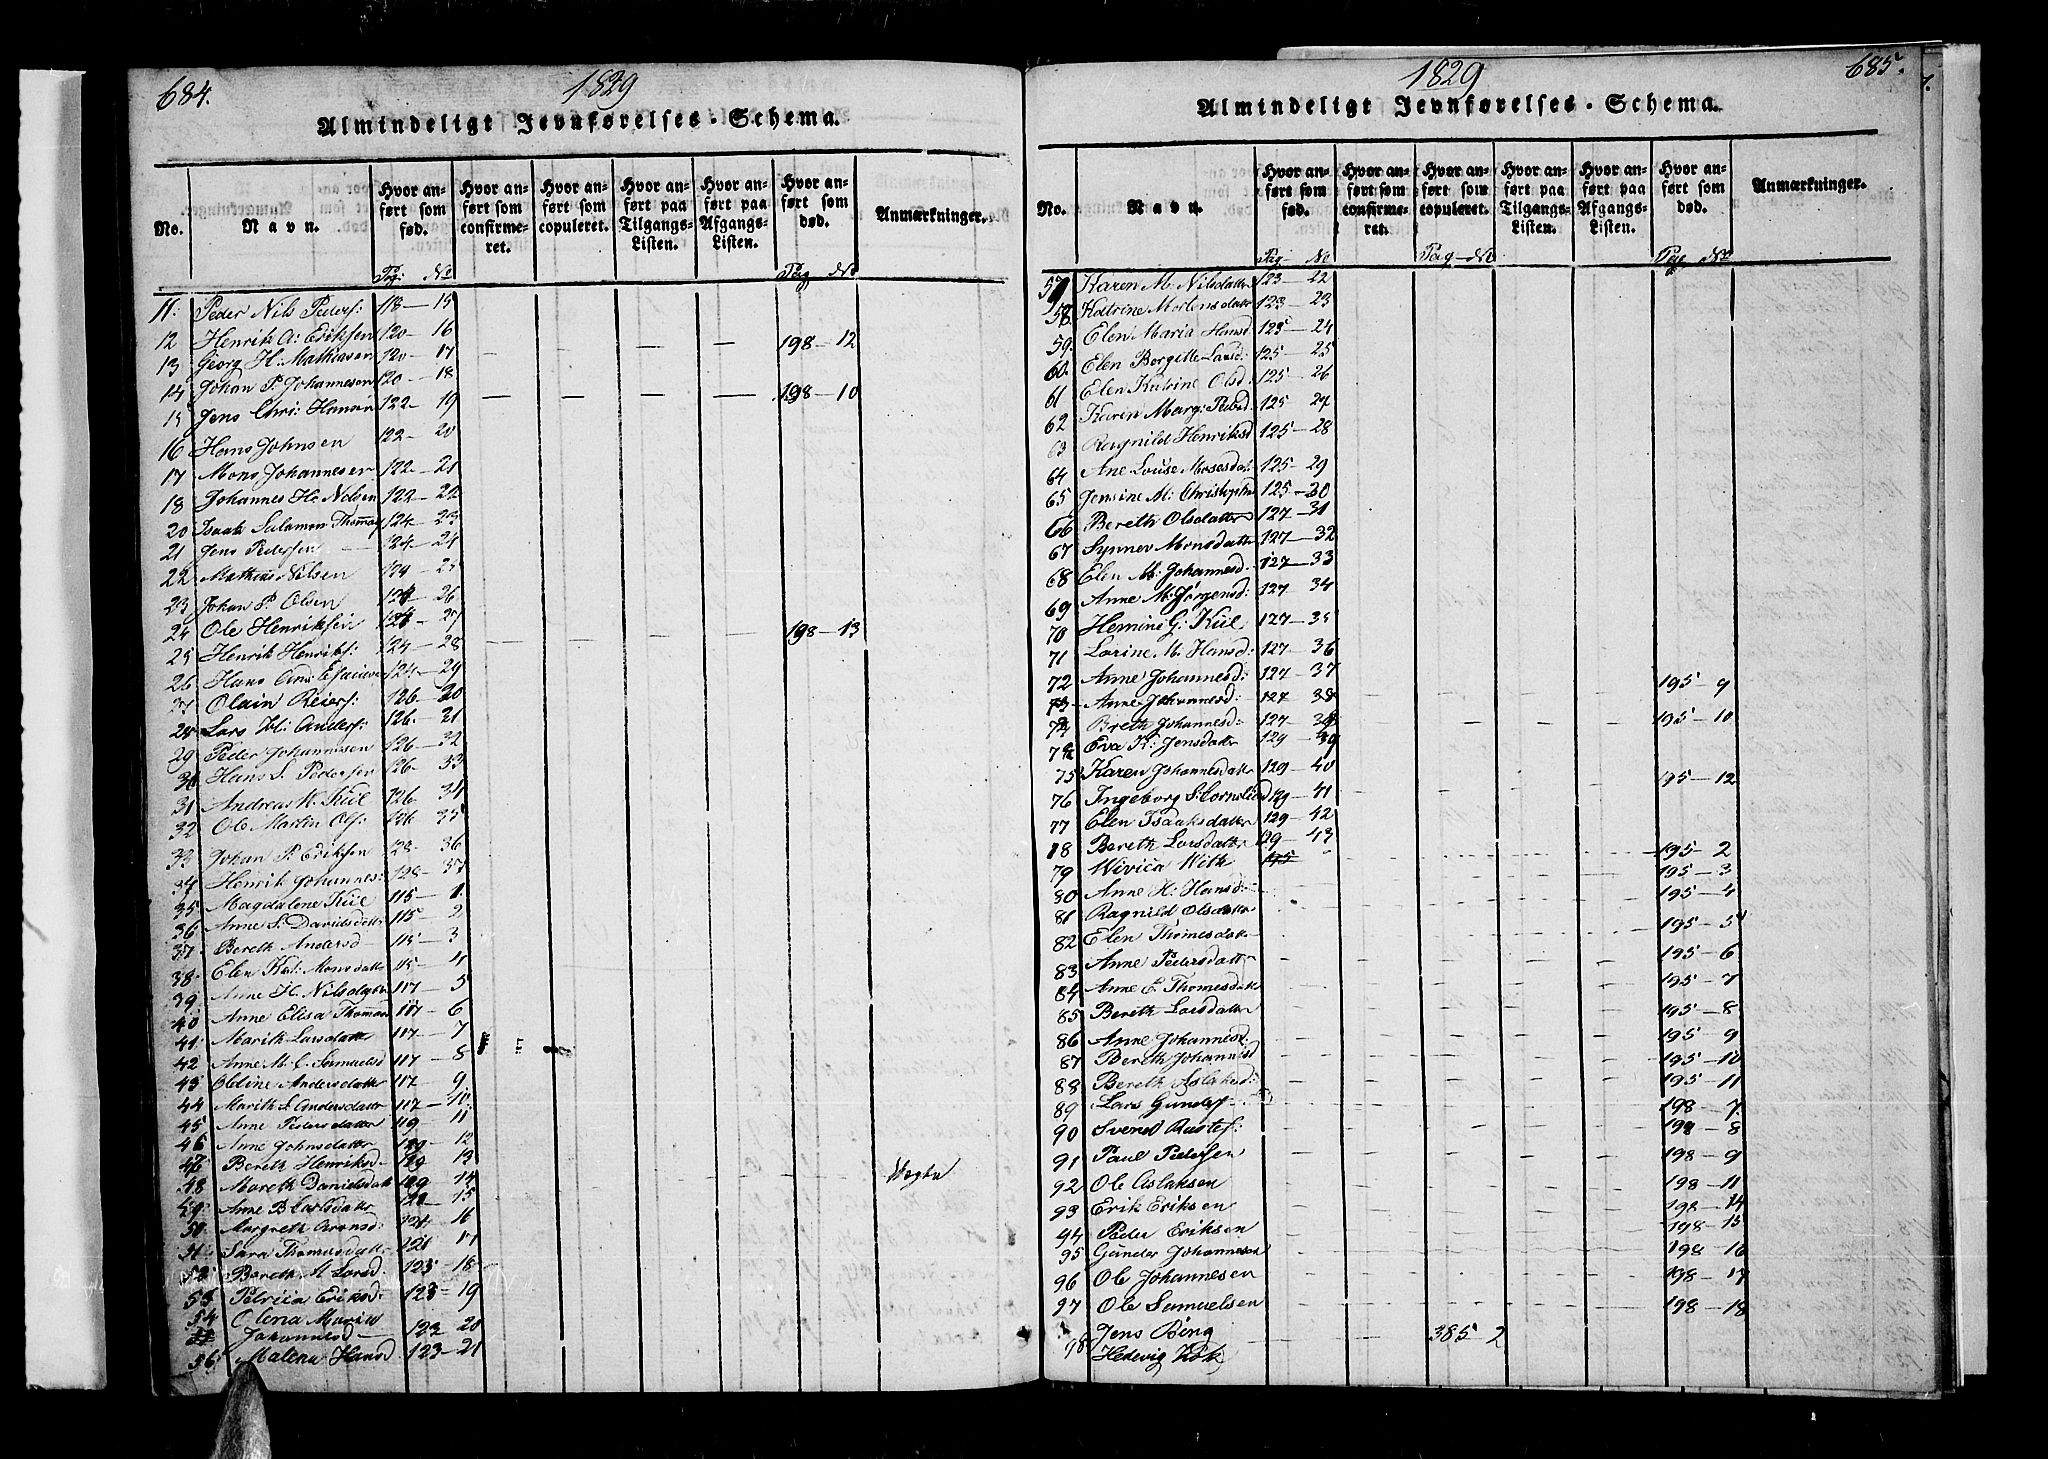 684.
1829
Almindeligt Jevnførelses-Schema.
No. Navn. Hvor anført som fød. Hvor anført som confirmeret. Hvor anført som copuleret. Hvor anført paa Tilgangs-Listen. Hvor anført paa Afgangs-Listen. Hvor anført som død. Anmærkninger.
Pag: No Pag No
11: Peder Nils Peders: 118-15
12 Henrik A: Eriksen 120-16 198-12
13 Georg H. Mathiasen 120-17
14 Johan P. Johannesen 120-18 198-10
15 Jens Chri: Hansen 122-19
16 Hans Johnsen 122-20
17 Mons Johannesen 122-21
18 Johannes H. Nilsen 122-22
20 Isaak Salamon Thomas 124-23
21 Jens Pedersen 124-24
22 Mathias Nilsen 124-25
23 Johan P. Olsen 124-26
24 Ole Henriksen 124-27 198-13
25 Henrik Henriks: 124-28
26 Hans And: 124-29
27 Olain Reiers: 126-30
28 Lars M: Anders: 126-31
29 Peder Johannesen 126-32
30 Hans S. Pedersen 126-33
31 Andreas M. Kiil 126 34
32 Ole Martin Ols: 126 35
33 Johan P. Eriksen 128-36
34 Henrik Johannes: 128-37
35 Magdalene Kiil 115-1
36 Anne S. Davidsdatter 115-2
37 Bereth Andersd 115-3
38 Elen Kat: Monsdatter 115-4
39 Anne H. Nilsdatter 117-5
40 Anne Elisa Thomas 117-6
41 Marith Larsdatter 117-7
42 Anne M. C. Samuelsd 117-8
43 Oldine Andersdatter 117-9
44 Marith S. Andersdatter 117-10
45 Anne Pedersdatter 119-11
46 Anne Johnsdatter 119-12
47 Bereth Henriksd 119 13
48 Mareth Danielsdatt 119 14
49 Anne B Larsdatter 121-15
50 Margreth Aronsd: 121-16
51 Sara Thomasdatt 121 17
52 Bereth M Larsd 123-18
53 Petricia Eriksd: 123-19
54 Olena Maria
Johannesd 123-20
56: Malena Hansd 123-21
685.
1829
Almindeligt Jevnførelses-Schema.
No. Navn. Hvor anført som fød. Hvor anført som confirmeret. Hvor anført som copuleret. Hvor anført paa Tilgangs-Listen. Hvor anført paa Afgangs-Listen. Hvor anført som død. Anmærkninger.
Pag- No Pag-No Pag No
57 Karen M. Nilsdatter 123-22
58 Katrine Mortensdatter 123-23
59. Elen Maria Hansd: 123-24
60. Elen Bergitte Larsd: 125-25
61 Elen Katrine Olsd: 125-26
62 Karen Marg: Pedersd 125-27
63 Ragnild Henriksd 125-28
64 Ane Louise Mosesdat: 125-29
65 Jensine M: Christophd 125-30
66 Bereth Olsdatter 127-31
67 Synner Monsdatter 127-32
68 Elen M: Johannesd. 127-33
69 Anne M: Jørgensd: 127 34
70 Hemine G: Kiil 127-35
71 Lorine M. Hansd: 127-36
72 Anne Johannesd: 127-37 195-9
73 Anne Johannesd: 127 38
74 Breth Johannesd: 127-38 195-10
74 Eva K: Jensdatter 129 39
75 Karen Johannesdatter 129-40 195-12
76 Ingeborg S: Cornelisd 129-41
77 Elen Isaaksdatter 129-42
78 Bereth Larsdatter 129-43
79 Wivica With 195-2
80 Anne H: Hansd: 195-3
81 Ragnild Olsdatter 195-4
82 Elen Thomesdatter 195-5
83 Anne Pedersdatter 195-6
84 Anne E. Thomesdatter 195-7
85 Bereth Larsdatter 195-8
86 Anne Johannesd: 195-9
87 Bereth Johannesd 195-10
88 Bereth Aslaksd: 195-11
89 Lars Gunders: 198-7
90 Svend Rastes: 198-8
91 Paul Pedersen 198-9
92 Ole Aslaksen 198-11
93 Erik Eriksen 198-14
94 Peder Eriksen 198-15
95 Gunder Johannesen 198-16
96 Ole Johannesen 198-17
97 Ole Samuelsen 198-18
98 Jens Bing 385 2
Hedevig Kok